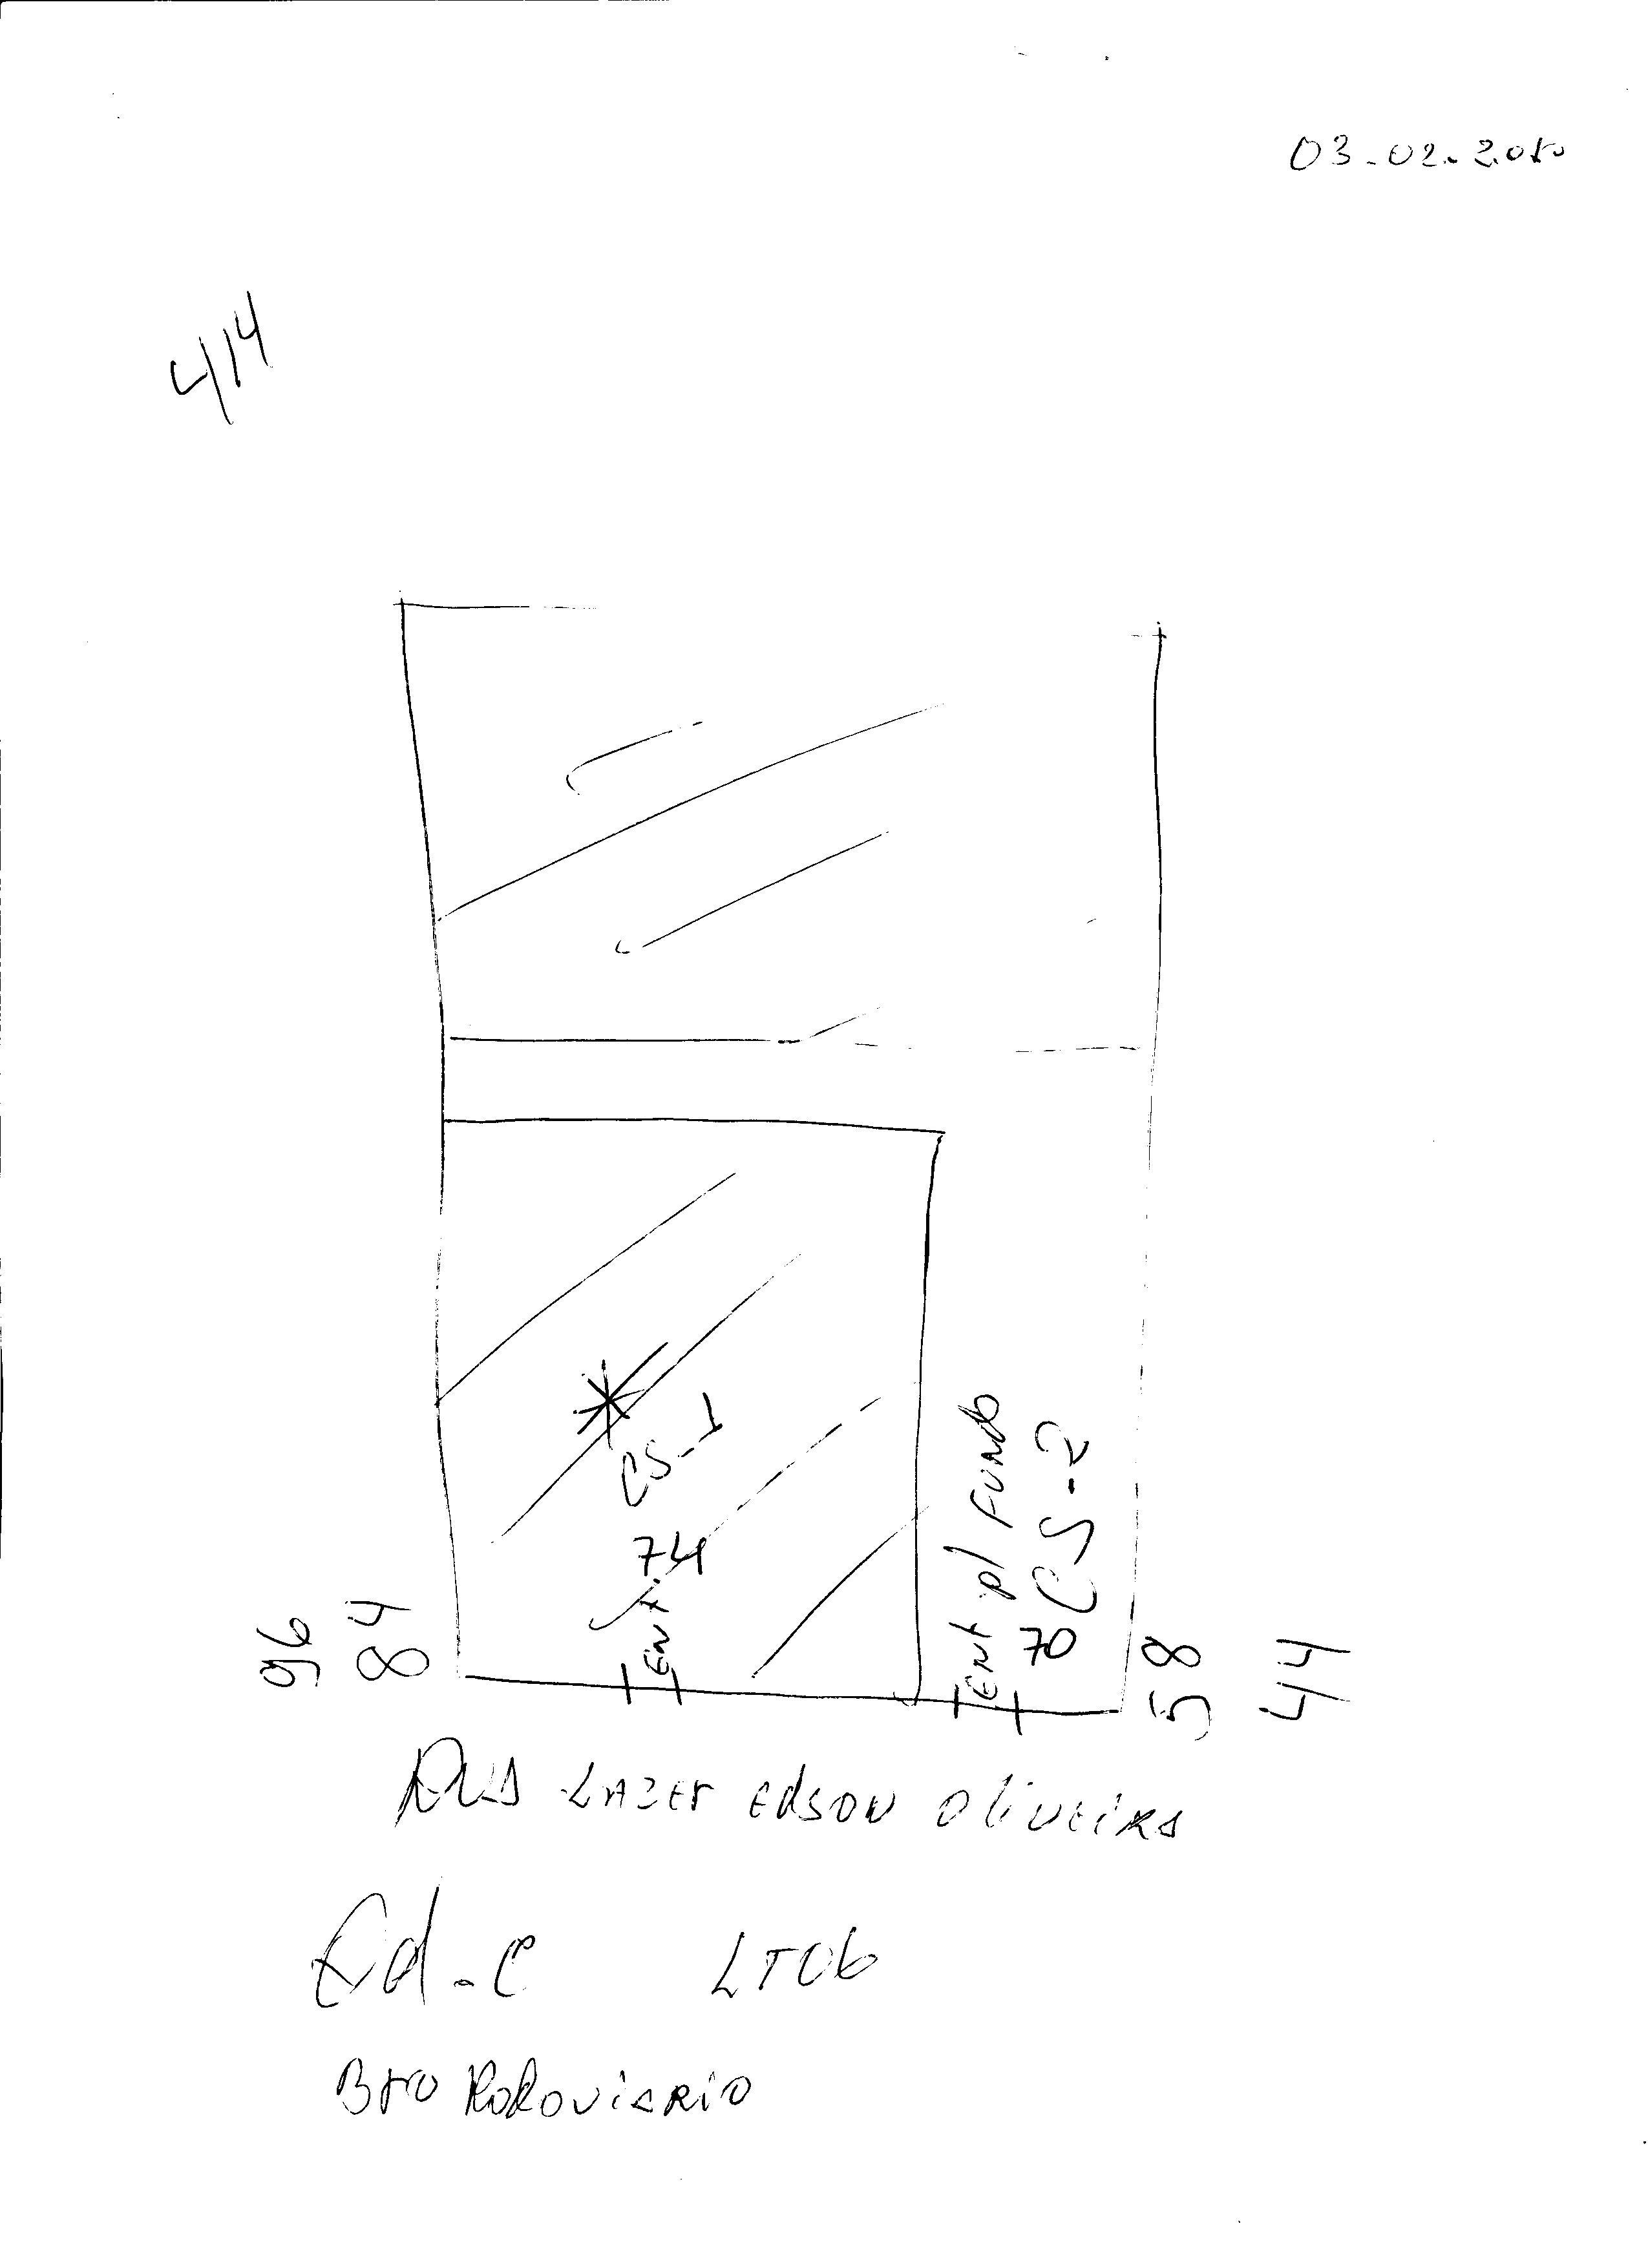 03-02-2010
414
CS-1
74
ENT.
ENT p/ FUNDO
CS-2
70
96
84
58
44
RUA LAZER EDSON OLIVEIRA
Qd-C LT06
BRO RODOVIARIO